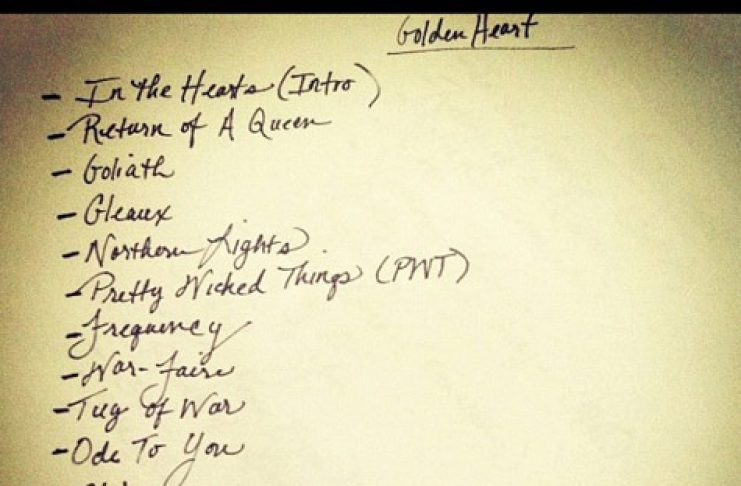 Golden Heart
- In The Hearts (Intro)
- Return of A Queen
- Goliath
- Gleaux
- Northern Lights
- Pretty Wicked Things (PWT)
- Frequency
- War-Faire
- Tug of War
- Ode To You